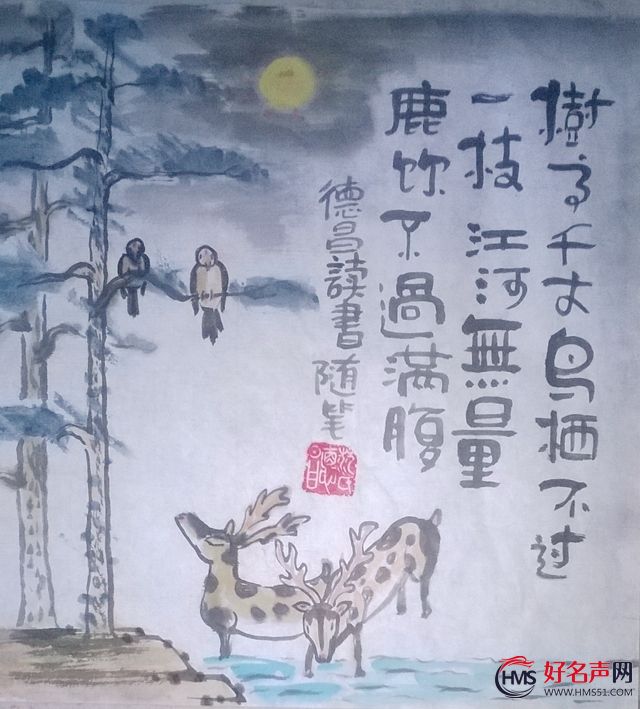 樹高千丈鸟栖不过
一枝江河無量
鹿飲不過满腹
德昌读書随笔
HMS
好名声网
WWW.HMS51.COM